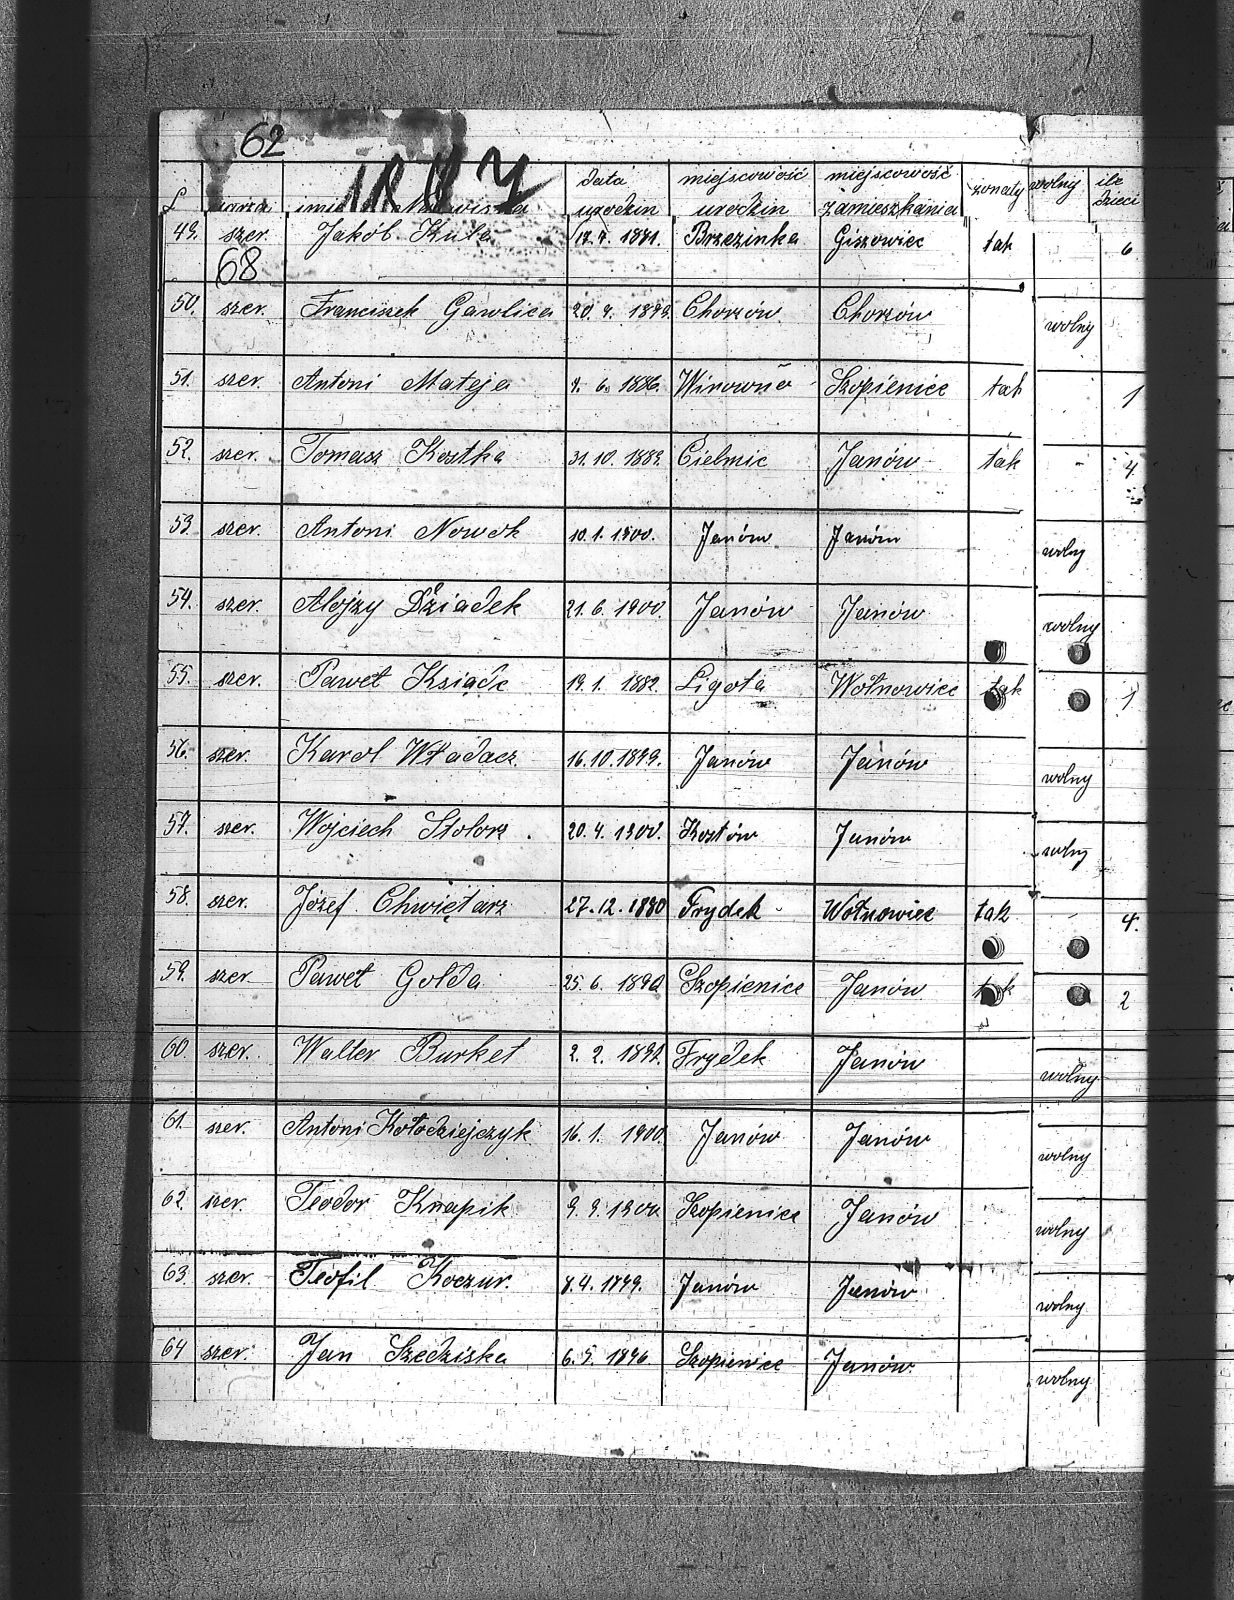 62
1887
data miejscowość miejscowość żonaty wolny ile
imię urodzin urodzin zamieszkania dzieci
49. szer. Jakób Kula 1881. Brzezinka Giszowiec tak 6
68
50. szer. Franciszek Gawlica 1899. Chorzów Chorzów wolny
51. szer. Antoni Mateja 6. 1886. Szopienice tak 1
52. szer. Tomasz Kostka 31.10. 1889. Cielmic Janów tak - 4
53. szer. Antoni Nowok 10.1.1900. Janów Janów wolny
54. szer. Alojzy Dziadek 21.6.1900. Janów Janów wolny
55. szer. Paweł Ksiądz 19.1. 1882. Ligota Wełnowiec tak 1
56. szer. Karol Władacz 16.10.1899. Janów Janów wolny
57. szer. Wojciech Stolorz 20.4.1900. Kostów Janów wolny
58. szer. Józef Chwiętarz 27.12.1890 Frydek Wełnowiec tak - 4.
59. szer. Paweł Golda 25.6.1890 Szopienice Janów tak 2
60. szer. Walter Burket 2.2. Frydek Janów wolny
61. szer. Antoni Kołodziejczyk 16.1. 1900. Janów Janów wolny
62. szer. Teodor Knapik 9.9.1900 Szopienice Janów wolny
63. szer. Teofil Koczur. 4.1899. Janów Janów wolny
64 szer. Jan Szedziska 6.5.1896 Szopienice Janów wolny